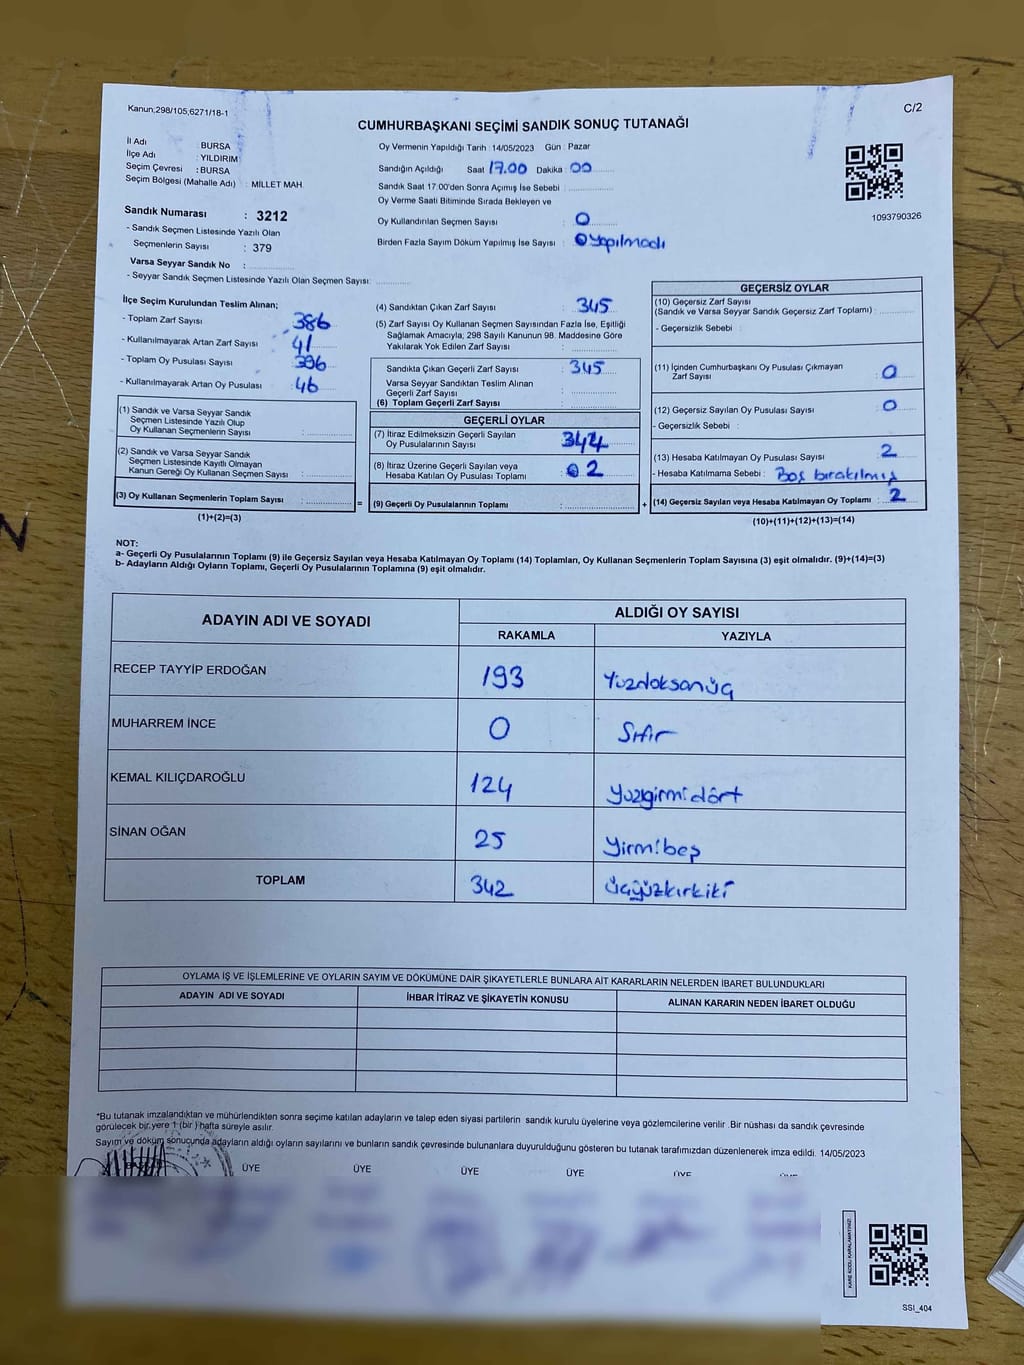 Kanun;298/105;6271/18-1
C/2
CUMHURBAŞKANI SEÇİMİ SANDIK SONUÇ TUTANAĞI
İl Adı : BURSA
İlçe Adı : YILDIRIM
Seçim Çevresi : BURSA
Seçim Bölgesi (Mahalle Adı) : MİLLET MAH.
Oy Vermenin Yapıldığı Tarih : 14/05/2023 Gün : Pazar
Sandığın Açıldığı Saat 17.00 Dakika : 00
Sandık Saat 17:00'den Sonra Açımış İse Sebebi :
Oy Verme Saati Bitiminde Sırada Bekleyen ve
Oy Kullandırılan Seçmen Sayısı : 0
Birden Fazla Sayım Döküm Yapılmış İse Sayısı : Yapılmadı
1093790326
Sandık Numarası : 3212
- Sandık Seçmen Listesinde Yazılı Olan
Seçmenlerin Sayısı : 379
Varsa Seyyar Sandık No :
- Seyyar Sandık Seçmen Listesinde Yazılı Olan Seçmen Sayısı:
İlçe Seçim Kurulundan Teslim Alınan;
- Toplam Zarf Sayısı : 386
- Kullanılmayarak Artan Zarf Sayısı : 41
- Toplam Oy Pusulası Sayısı
- Kullanılmayarak Artan Oy Pusulası : 46
(1) Sandık ve Varsa Seyyar Sandık
Seçmen Listesinde Yazılı Olup
Oy Kullanan Seçmenlerin Sayısı :
(2) Sandık ve Varsa Seyyar Sandık
Seçmen Listesinde Kayıtlı Olmayan
Kanun Gereği Oy Kullanan Seçmen Sayısı :
(3) Oy Kullanan Seçmenlerin Toplam Sayısı : =
(1)+(2)=(3)
(4) Sandıktan Çıkan Zarf Sayısı : 345
(5) Zarf Sayısı Oy Kullanan Seçmen Sayısından Fazla İse, Eşitliği
Sağlamak Amacıyla; 298 Sayılı Kanunun 98. Maddesine Göre
Yakılarak Yok Edilen Zarf Sayısı :
Sandıkta Çıkan Geçerli Zarf Sayısı : 345
Varsa Seyyar Sandıktan Teslim Alınan
Geçerli Zarf Sayısı :
(6) Toplam Geçerli Zarf Sayısı :
GEÇERLİ OYLAR
(7) İtiraz Edilmeksizin Geçerli Sayılan
Oy Pusulalarının Sayısı
(8) İtiraz Üzerine Geçerli Sayılan veya
Hesaba Katılan Oy Pusulası Toplamı : 2
(9) Geçerli Oy Pusulalarının Toplamı : +
GEÇERSİZ OYLAR
(10) Geçersiz Zarf Sayısı
(Sandık ve Varsa Seyyar Sandık Geçersiz Zarf Toplamı) :
- Geçersizlik Sebebi :
(11) İçinden Cumhurbaşkanı Oy Pusulası Çıkmayan
Zarf Sayısı : 0
(12) Geçersiz Sayılan Oy Pusulası Sayısı : 0
- Geçersizlik Sebebi :
(13) Hesaba Katılmayan Oy Pusulası Sayısı : 2
- Hesaba Katılmama Sebebi : Boş bırakılmış
(14) Geçersiz Sayılan veya Hesaba Katılmayan Oy Toplamı : 2
(10)+(11)+(12)+(13)=(14)
NOT:
a- Geçerli Oy Pusulalarının Toplamı (9) ile Geçersiz Sayılan veya Hesaba Katılmayan Oy Toplamı (14) Toplamları, Oy Kullanan Seçmenlerin Toplam Sayısına (3) eşit olmalıdır. (9)+(14)=(3)
b- Adayların Aldığı Oyların Toplamı, Geçerli Oy Pusulalarının Toplamına (9) eşit olmalıdır.
ADAYIN ADI VE SOYADI
ALDIĞI OY SAYISI
RAKAMLA YAZIYLA
RECEP TAYYİP ERDOĞAN 193 Yüzdoksanüç
MUHARREM İNCE 0 Sıfır
KEMAL KILIÇDAROĞLU 124 yüzyirmidört
SİNAN OĞAN 25 Yirmibeş
TOPLAM 342 üçyüzkırkiki
OYLAMA İŞ VE İŞLEMLERİNE VE OYLARIN SAYIM VE DÖKÜMÜNE DAİR ŞİKAYETLERLE BUNLARA AİT KARARLARIN NELERDEN İBARET BULUNDUKLARI
ADAYIN ADI VE SOYADI İHBAR İTİRAZ VE ŞİKAYETİN KONUSU ALINAN KARARIN NEDEN İBARET OLDUĞU
*Bu tutanak imzalandıktan ve mühürlendikten sonra seçime katılan adayların ve talep eden siyasi partilerin sandık kurulu üyelerine veya gözlemcilerine verilir .Bir nüshası da sandık çevresinde
görülecek bir yere 1 (bir ) hafta süreyle asılır.
Sayım ve döküm sonucunda adayların aldığı oyların sayılarını ve bunların sandık çevresinde bulunanlara duyurulduğunu gösteren bu tutanak tarafımızdan düzenlenerek imza edildi. 14/05/2023
ÜYE ÜYE ÜYE ÜYE ÜYE
KARE KODU KARALAMAYINIZ!
SSI_404